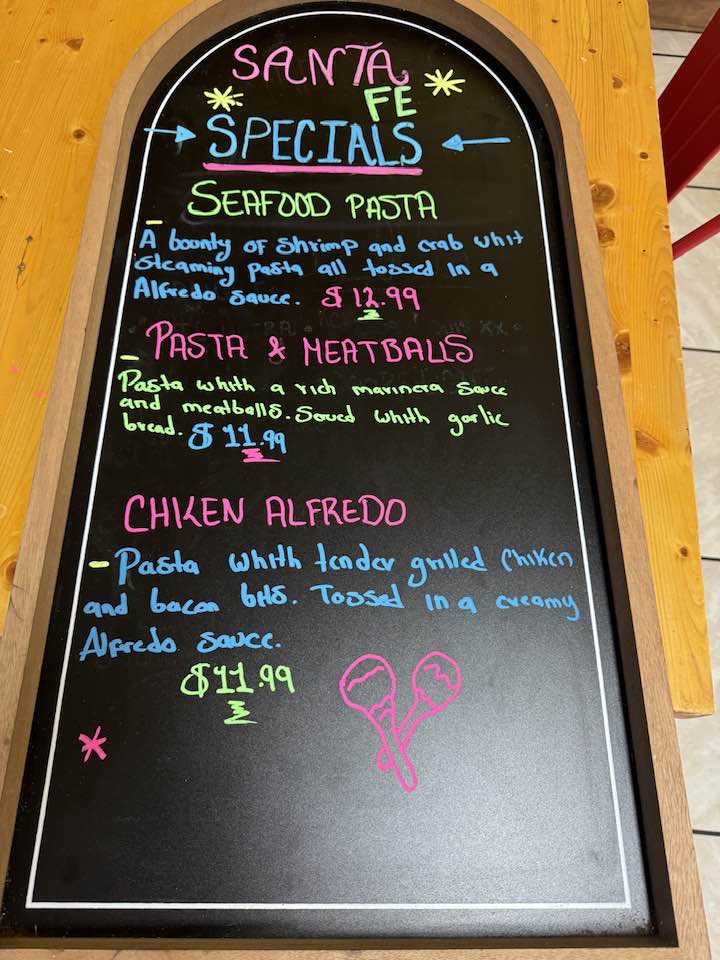 SANTA
FE
SPECIALS
SEAFOOD PASTA
- A bounty of shrimp and crab whit
steaming pasta all tossed in a
Alfredo sauce. $ 12.99
- PASTA & MEATBALLS
Pasta whith a rich marinera sauce
and meatballs. Served whith garlic
bread. $ 11.99
CHIKEN ALFREDO
- Pasta whith tender grilled chiken
and bacon bits. Tossed in a creamy
Alfredo sauce.
$11.99